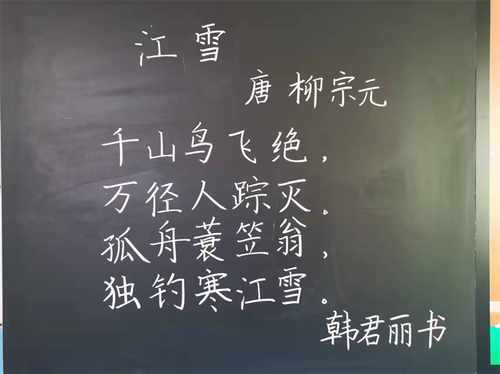 江雪
唐 柳宗元
千山鸟飞绝，
万径人踪灭。
孤舟蓑笠翁，
独钓寒江雪。
韩君丽书